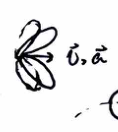 v⃗, a⃗